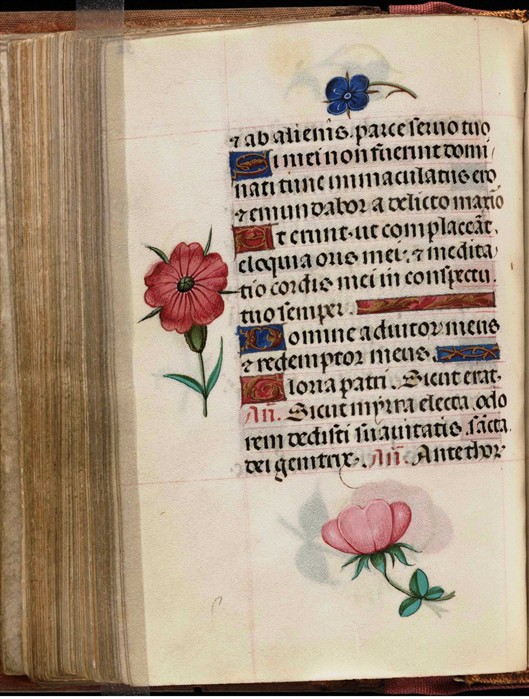 ⁊ ab alienis. parce seruo tuo
Si mei non fuerint domi
nati tunc immaculatus ero
⁊ emundabor a delicto maxīo
Et erunt. ut complaceāt.
eloquia oris mei. ⁊ medita
tio cordis mei in conspectu.
tuo semper.
Domine adiutor meus
⁊ redemptor meus.
Gloria patri. Sicut erat.
Añ. Sicut myrra electa odo
rem dedisti suauitatis. sācta.
dei genitrix. Añ. Ante thor